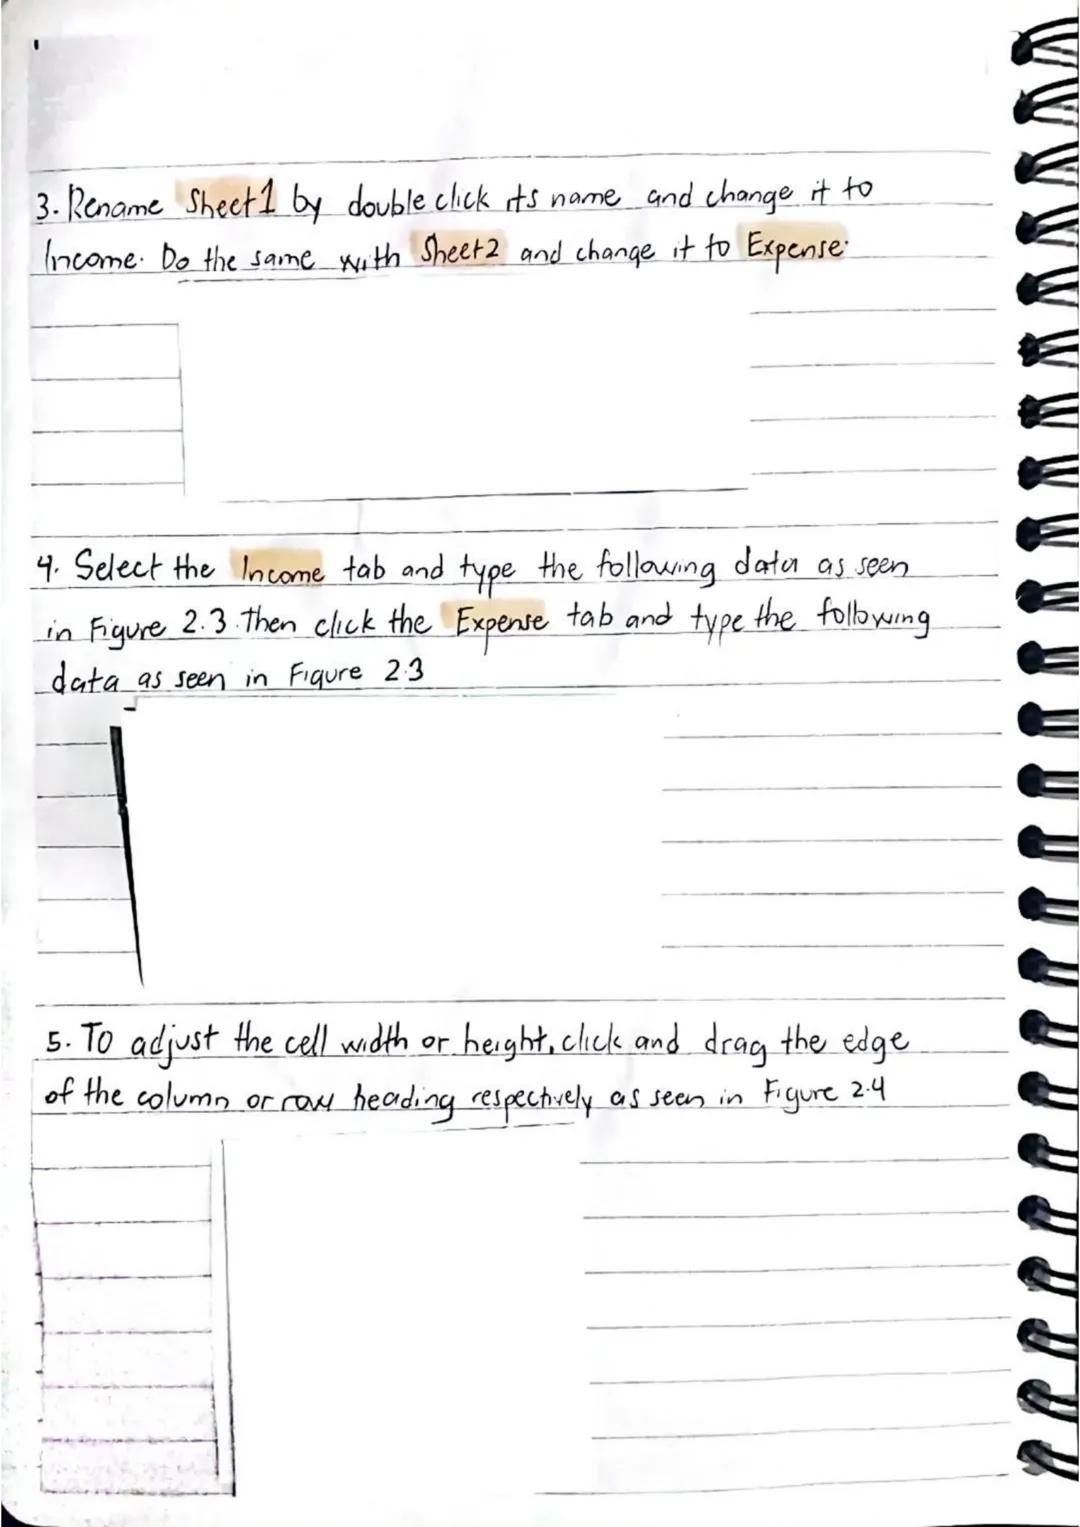 3. Rename Sheet1 by double click its name and change it to
Income. Do the same with Sheet2 and change it to Expense.
4. Select the Income tab and type the following data as seen
in Figure 2.3. Then click the Expense tab and type the following
data as seen in Figure 2.3
5. To adjust the cell width or height, click and drag the edge
of the column or row heading respectively as seen in Figure 2.4